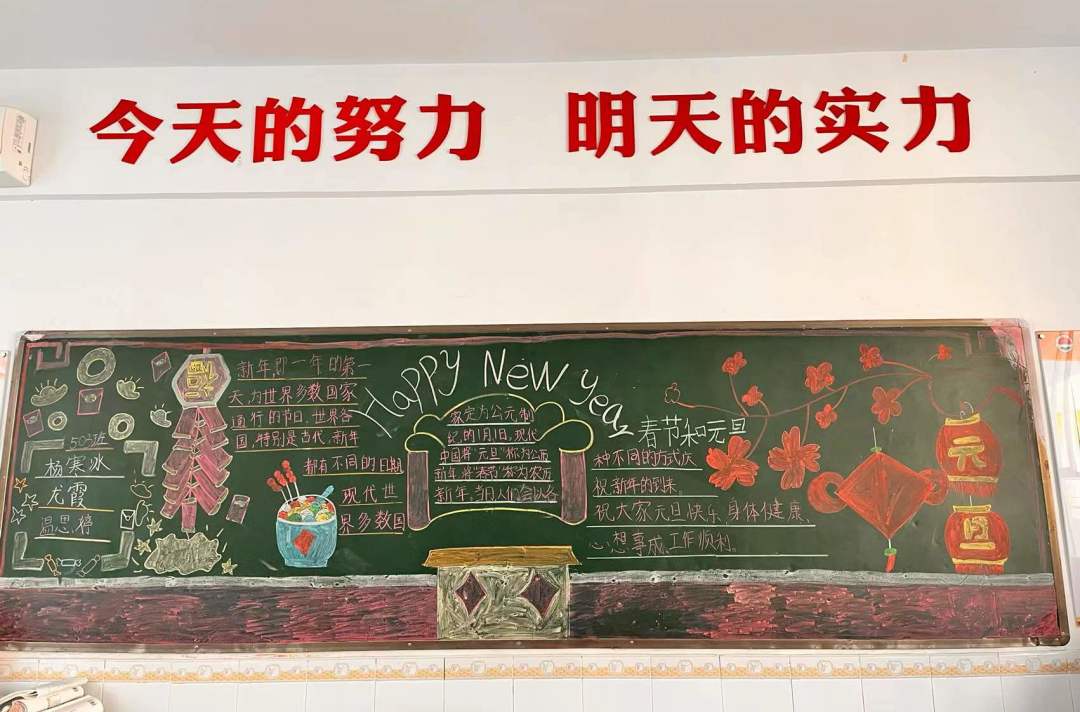 今天的努力 明天的实力
HAPPY New year
503班
杨寒冰
龙霞
温思榜
新年,即一年的第一
天,为世界多数国家
通行的节日。世界各
国,特别是古代,新年
都有不同的日期
现代世
界多数国
家定为公元制
纪的1月1日。现代
中国将“元旦”称为公历
新年,将“春节”称为农历
新年。当日人们会以各
春节和元旦
种不同的方式庆
祝新年的到来。
祝大家元旦快乐、身体健康、
心想事成、工作顺利。
元
旦